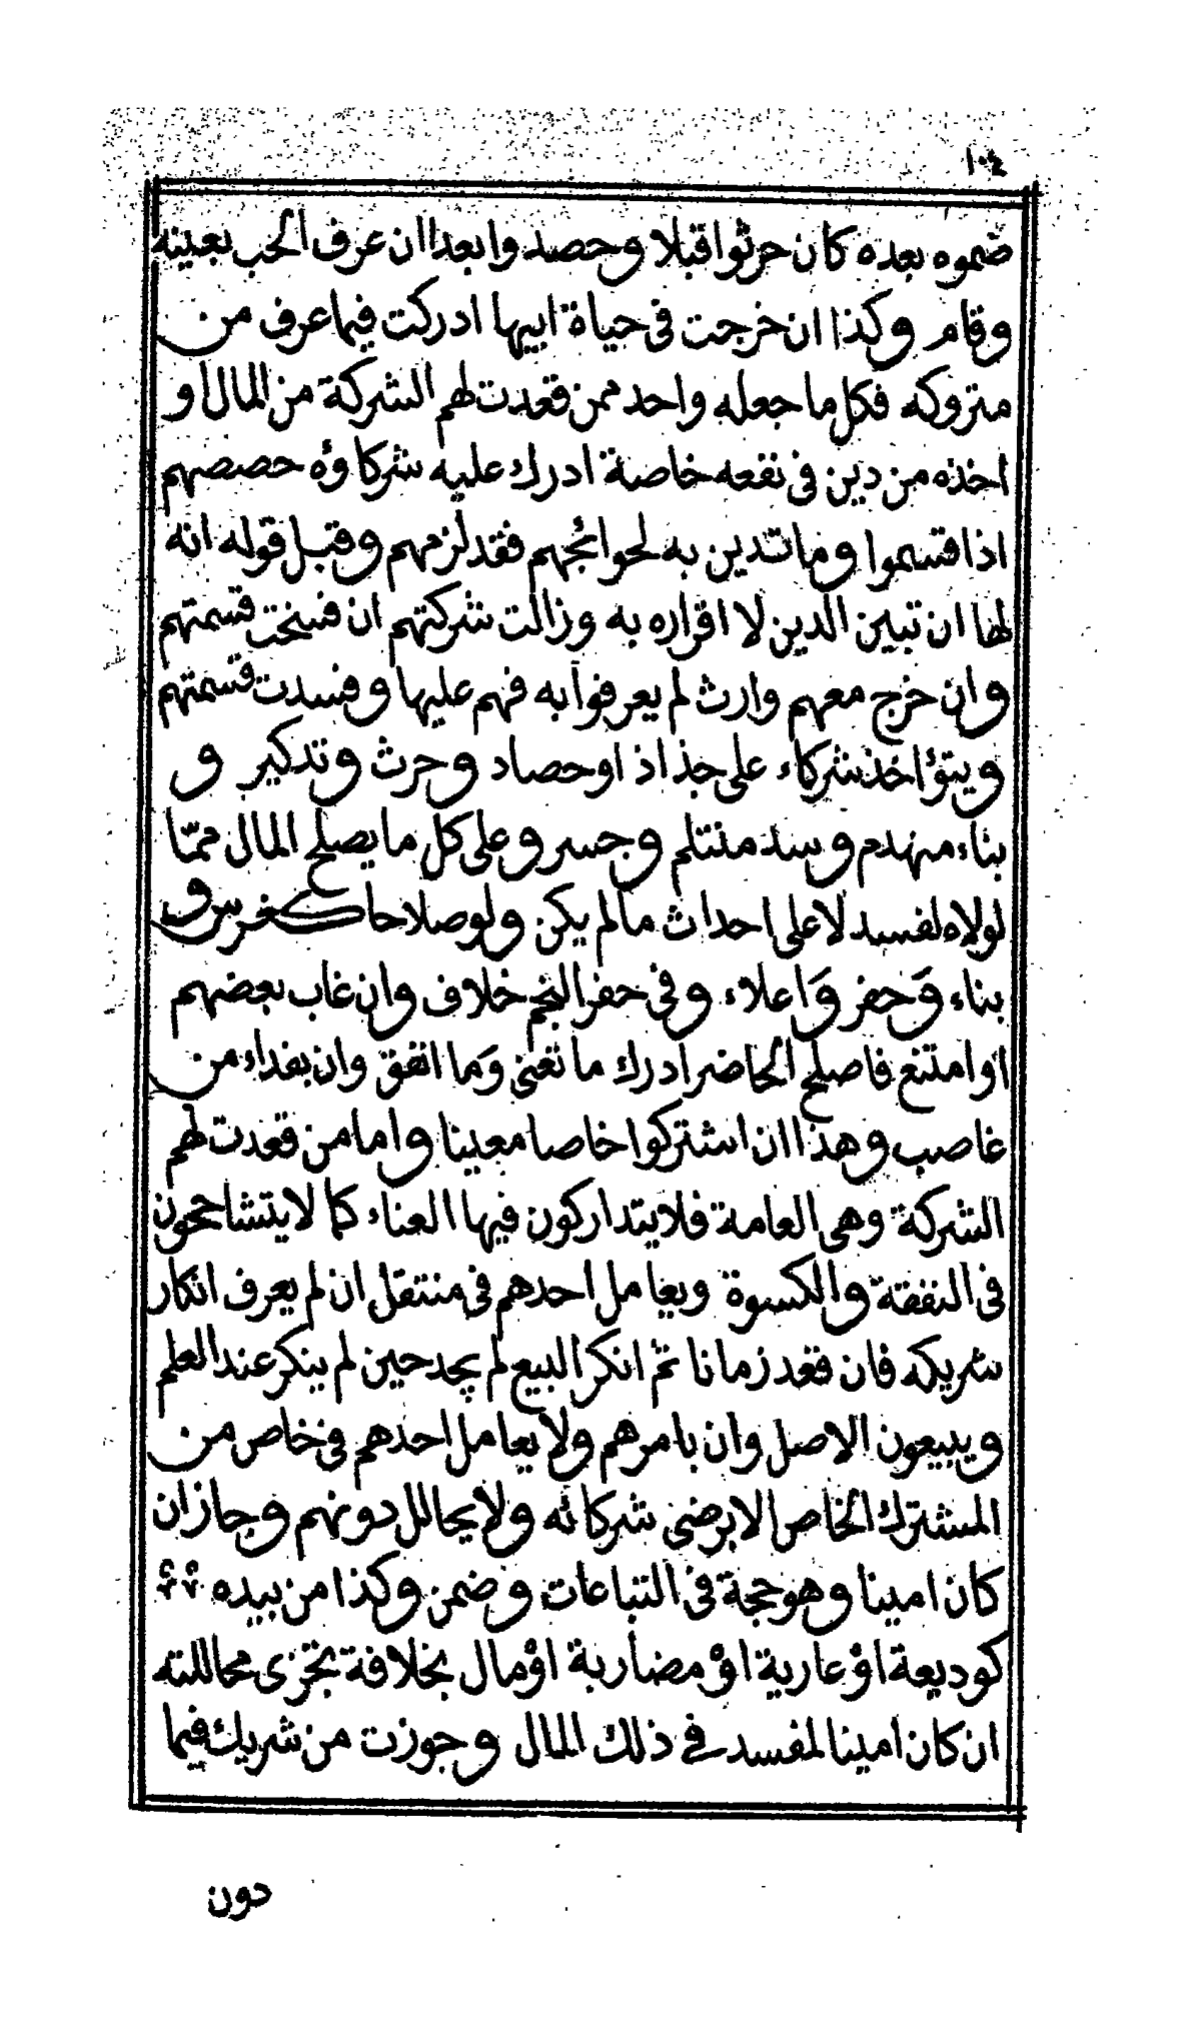 ١٠٤
ضموه بعده كان حرثوا قبلا وحصدوا بعدا ان عرف الحب بعينه
وقام وكذا ان خرجت فى حياة ابيها ادركت فيما عرف من
متروكه فكل ما جعله واحد ممن قعدت لهم الشركة من المال او
اخذه من دين فى نفعه خاصة ادرك عليه شركاؤه حصصهم
اذا قسموا وما تدين به لحوائجهم فقد لزمهم وقبل قوله انه
لها ان تبين الدين لا اقراره به وزالت شركتهم ان فسخت قسمتهم
وان خرج معهم وارث لم يعرفوا به فهم عليها وفسدت قسمتهم
ويتؤاخذ شركاء على جذاذ او حصاد وحرث وتدكير و
بناء منهدم وسد منثلم وجسر وعلى كل ما يصلح المال ممّا
لولاه لفسد لا على احداث ما لم يكن ولو صلاحا كغرس و
بناء وَحفر وَاعلاء وفى حفر النجم خلاف وان غاب بعضهم
او امتنع فاصلح الحاضر ادرك ما تعنى وَما انفق وان بفداء من
غاصب وهذا ان اشتركوا خاصا معينا واما من قعدت لهم
الشركة وهى العامة فلا يتداركون فيها العناء كما لا يتشاححون
فى النفقة والكسوة ويعامل احدهم فى منتقل ان لم يعرف انكار
شريكه فان قعد زمانا ثم انكر البيع لم يجد حين لم ينكر عند العلم
ويبيعون الاصل وان بامرهم ولا يعامل احدهم فى خاص من
المشترك الخاص الا برضى شركائه ولا يحالل دونهم وجاز ان
كان امينا وهو حجة فى التباعات وضمن وكذا من بيده
كوديعة اؤ عارية اوْ مضاربة اوْ مال بخلافة تجزى محاللته
ان كان امينا لمفسد فى ذلك المال وجوزت من شريك فيما
دون